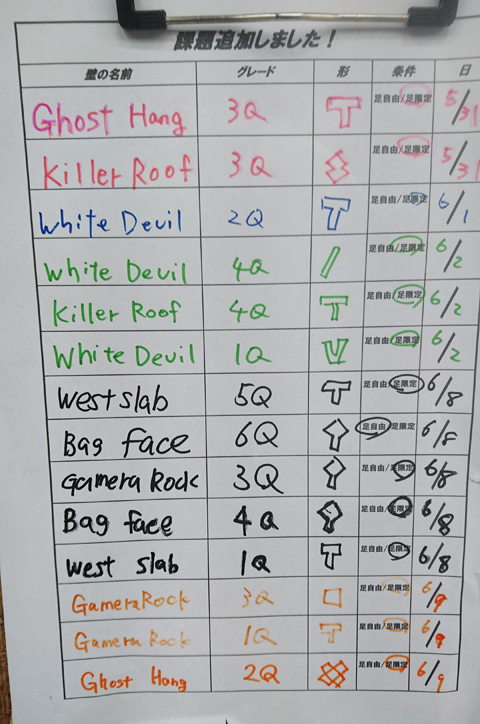 課題追加しました！
壁の名前 グレード 形 条件 日
Ghost Hang 3Q 足自由/足限定 5/31
Killer Roof 3Q 足自由/足限定 5/31
White Devil 2Q 足自由/足限定 6/1
White Devil 4Q 足自由/足限定 6/2
Killer Roof 4Q 足自由/足限定 6/2
White Devil 1Q 足自由/足限定 6/2
West slab 5Q 足自由/足限定 6/8
Bag face 6Q 足自由/足限定 6/8
Gamera Rock 3Q 足自由/足限定 6/8
Bag face 4Q 足自由/足限定 6/8
West slab 1Q 足自由/足限定 6/8
Gamera Rock 3Q 足自由/足限定 6/9
Gamera Rock 1Q 足自由/足限定 6/9
Ghost Hang 2Q 足自由/足限定 6/9